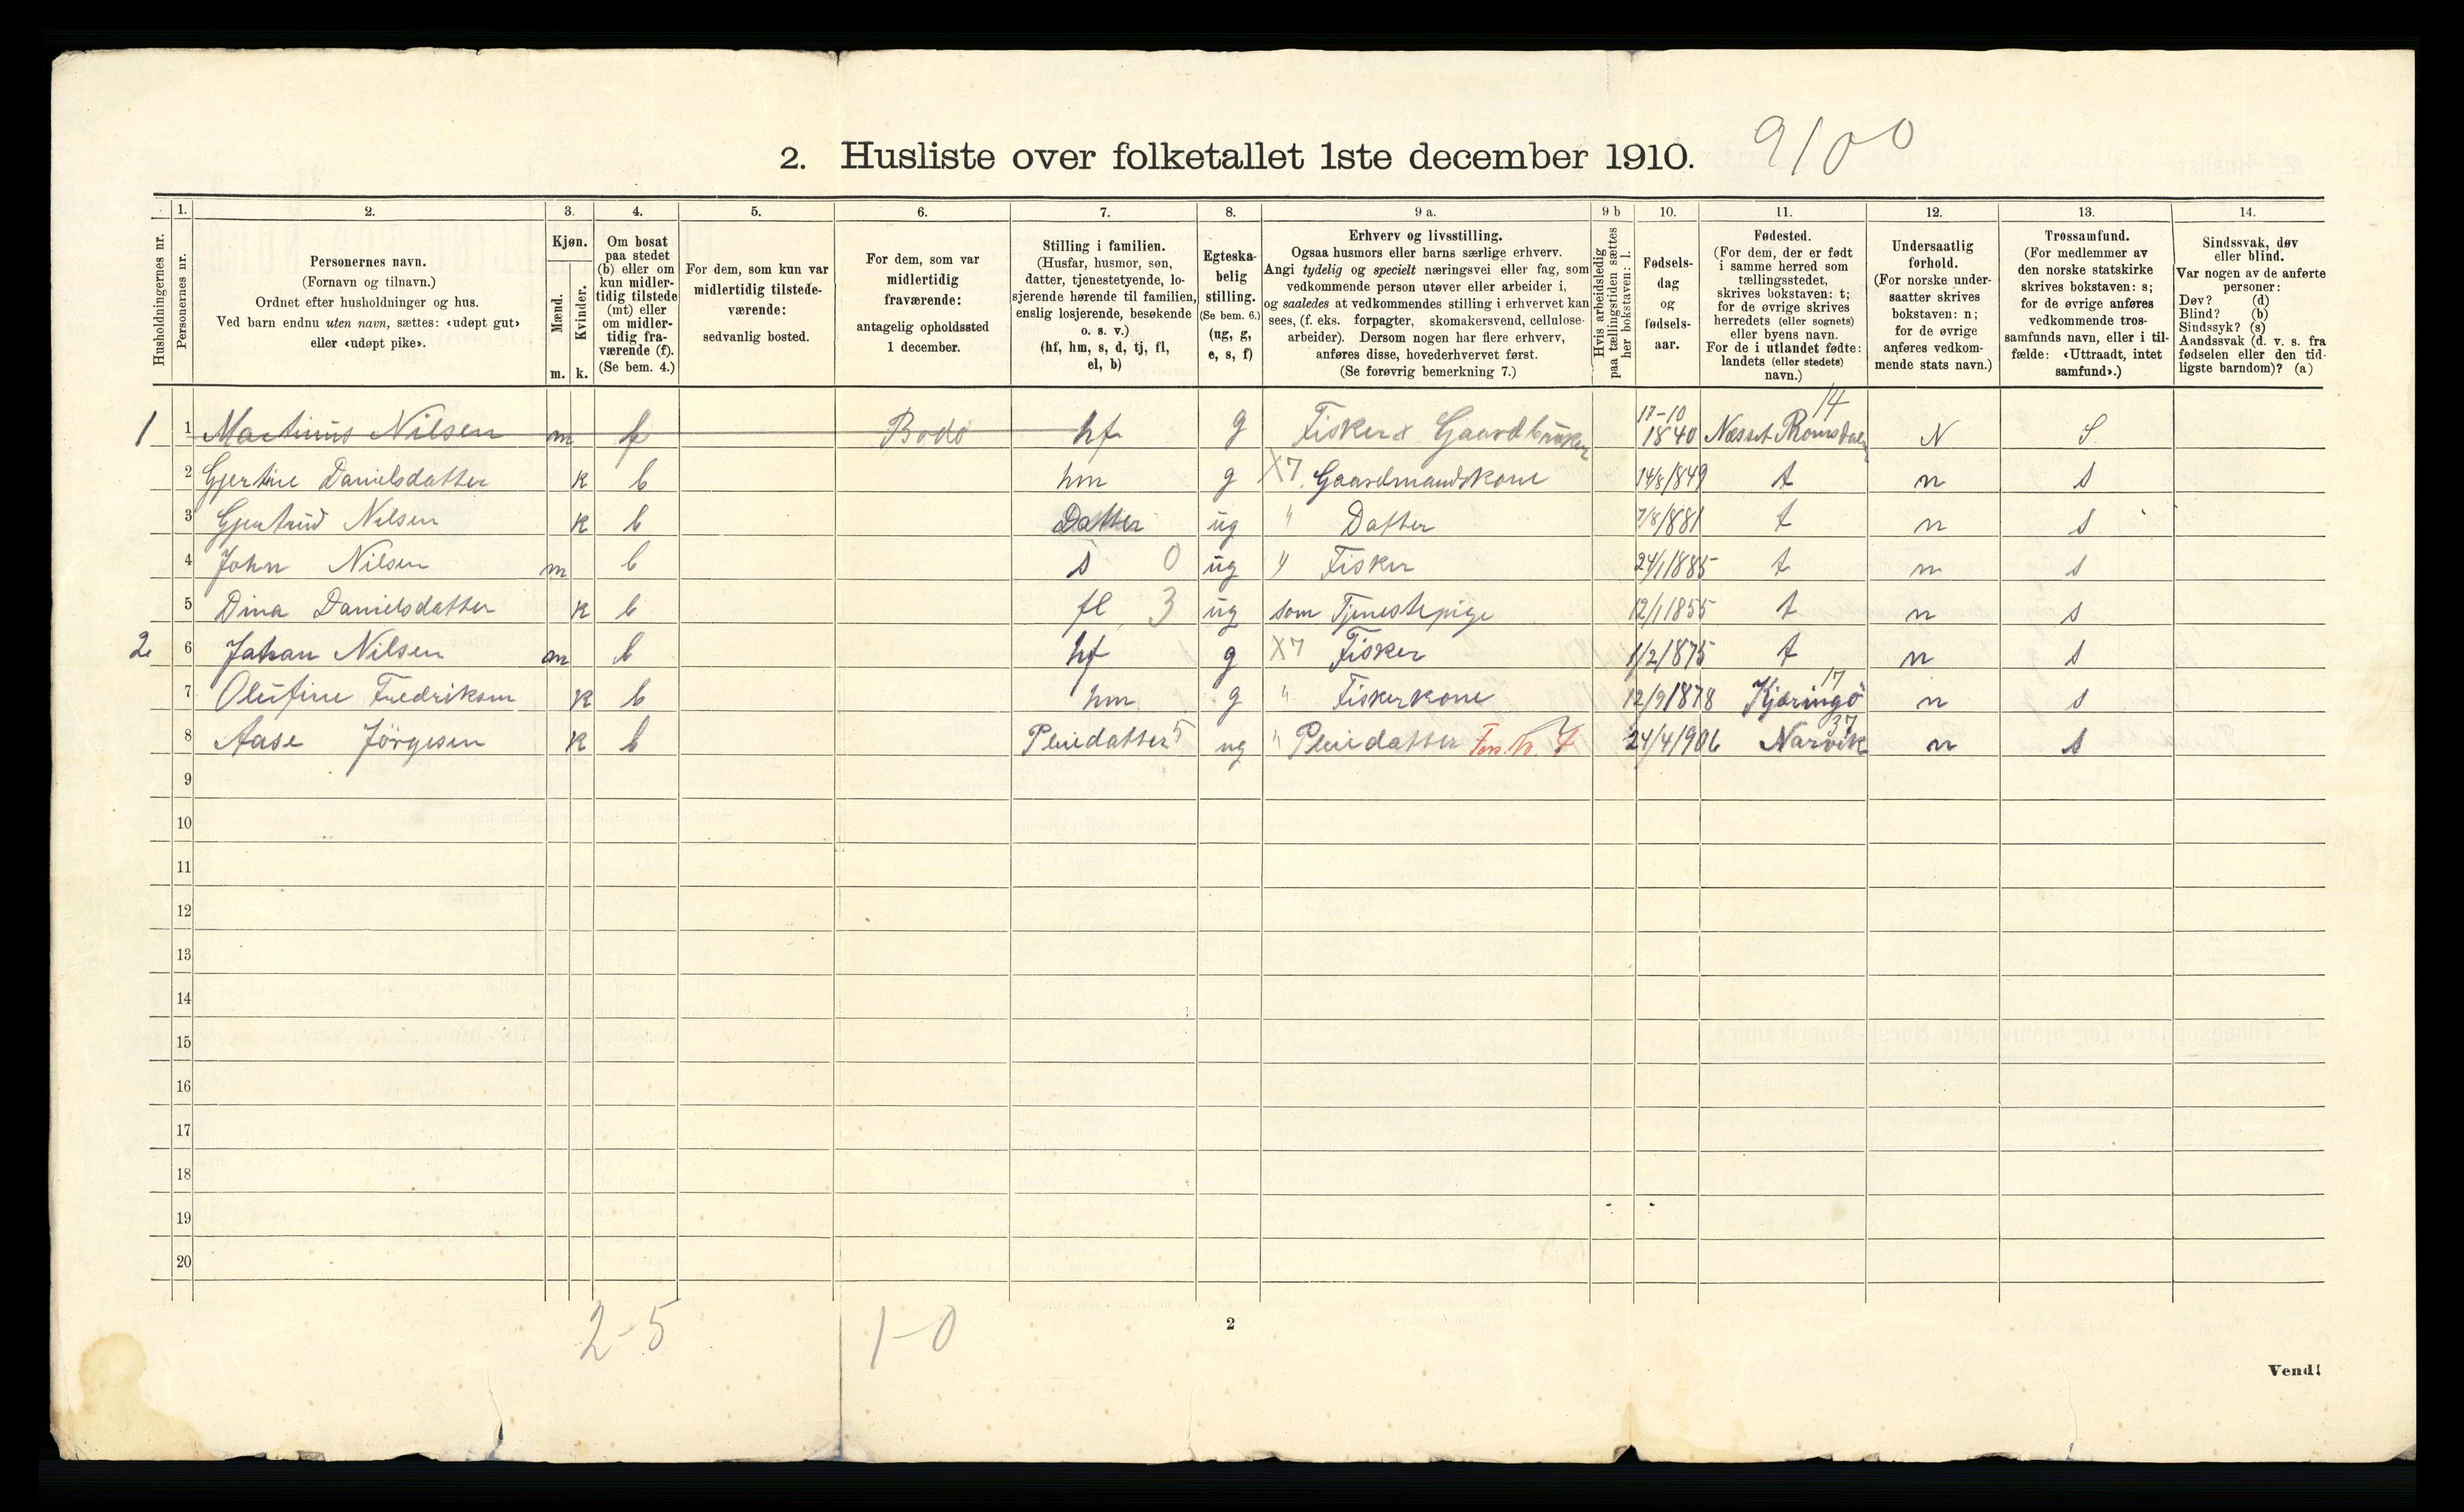 2. Husliste over folketallet 1ste december 1910. 9100
1. 2. 3. 4. 5. 6. 7. 8. 9 a. 9 b 10. 11. 12. 13. 14.
Husholdningernes nr.
Personernes nr.
Personernes navn.
(Fornavn og tilnavn.)
Ordnet efter husholdninger og hus.
Ved barn endnu uten navn, sættes: «udøpt gut»
eller «udøpt pike».
Kjøn.
Mænd.
Kvinder.
m. k.
Om bosat
paa stedet
(b) eller om
kun midler-
tidig tilstede
(mt) eller
om midler-
tidig fra-
værende (f).
(Se bem. 4.)
For dem, som kun var
midlertidig tilstede-
værende:
sedvanlig bosted.
For dem, som var
midlertidig
fraværende:
antagelig opholdssted
1 december.
Stilling i familien.
(Husfar, husmor, søn,
datter, tjenestetyende, lo-
sjerende hørende til familien,
enslig losjerende, besøkende
o. s. v.)
(hf, hm, s, d, tj, fl,
el, b)
Egteska-
belig
stilling.
(Se bem. 6.)
(ug, g,
e, s, f)
Erhverv og livsstilling.
Ogsaa husmors eller barns særlige erhverv.
Angi tydelig og specielt næringsvei eller fag, som
vedkommende person utøver eller arbeider i,
og saaledes at vedkommendes stilling i erhvervet kan
sees, (f. eks. forpagter, skomakersvend, cellulose-
arbeider). Dersom nogen har flere erhverv,
anføres disse, hovederhvervet først.
(Se forøvrig bemerkning 7.)
Hvis arbeidsledig
paa tællingstiden sættes
her bokstaven: l.
Fødsels-
dag
og
fødsels-
aar.
Fødested.
(For dem, der er født
i samme herred som
tællingsstedet,
skrives bokstaven: t;
for de øvrige skrives
herredets (eller sognets)
eller byens navn.
For de i utlandet fødte:
landets (eller stedets)
navn.)
Undersaatlig
forhold.
(For norske under-
saatter skrives
bokstaven: n;
for de øvrige
anføres vedkom-
mende stats navn.)
Trossamfund.
(For medlemmer av
den norske statskirke
skrives bokstaven: s;
for de øvrige anføres
vedkommende tros-
samfunds navn, eller i til-
fælde: «Uttraadt, intet
samfund».)
Sindssvak, døv
eller blind.
Var nogen av de anførte
personer:
Døv? (d)
Blind? (b)
Sindssyk? (s)
Aandssvak (d. v. s. fra
fødselen eller den tid-
ligste barndom)? (a)
1 1 Martinus Nilsen m f Bodö hf g Fisker & Gaardbruker 17-10 1840 Næsset Romsdalen 14 N S
2 Gjertine Danielsdatter k b hm g X7 Gaardmandskone 14/8 1849 t n s
3 Gjertrud Nilsen k b Datter ug " Datter 7/8 1881 t n s
4 John Nilsen m b s 0 ug " Fisker 24/1 1885 t n s
5 Dina Danielsdatter k b fl 3 ug som Tjenestepige 12/1 1855 t n s
2 6 Johan Nilsen m b hf g X7 Fisker 1/2 1875 t n s
7 Olufine Fredriksen k b hm g " Fiskerkone 12/9 1878 Kjæringö 17 n s
8 Aase Jörgesen k b Pleiedatter 5 ug " Pleiedatter 24/4 1906 Narvik 37 n s
9
10
11
12
13
14
15
16
17
18
19
20
2-5 1-0
2
Vend!